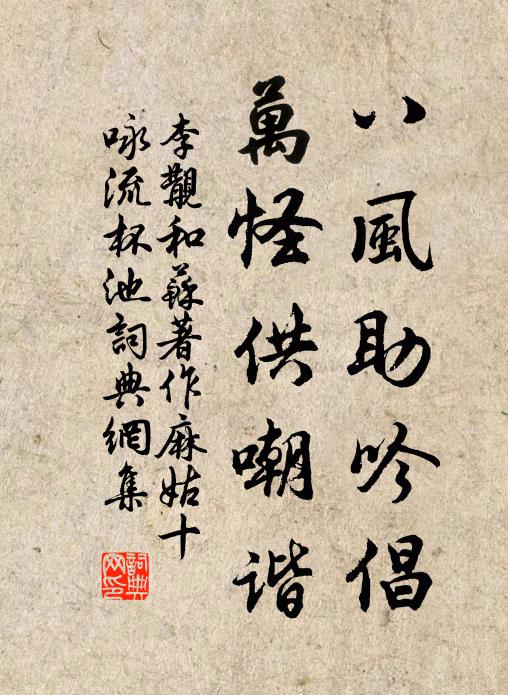 八風助吟倡
萬怪供嘲谐
李觀和蘇著作麻姑十
咏流杯池詞典網集
詞典
网印